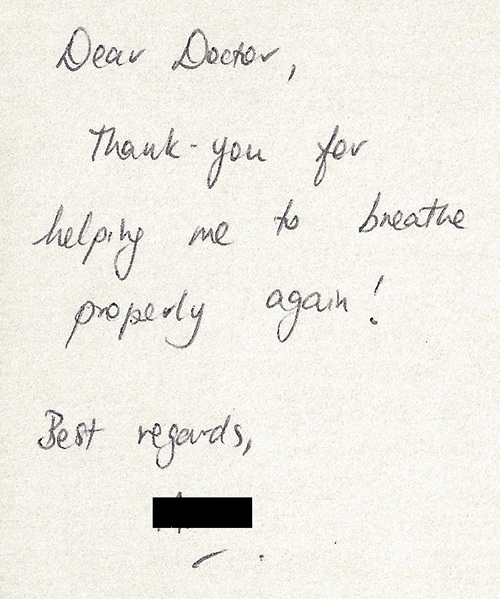 Dear Doctor,
Thank-you for
helping me to breathe
properly again!
Best regards,